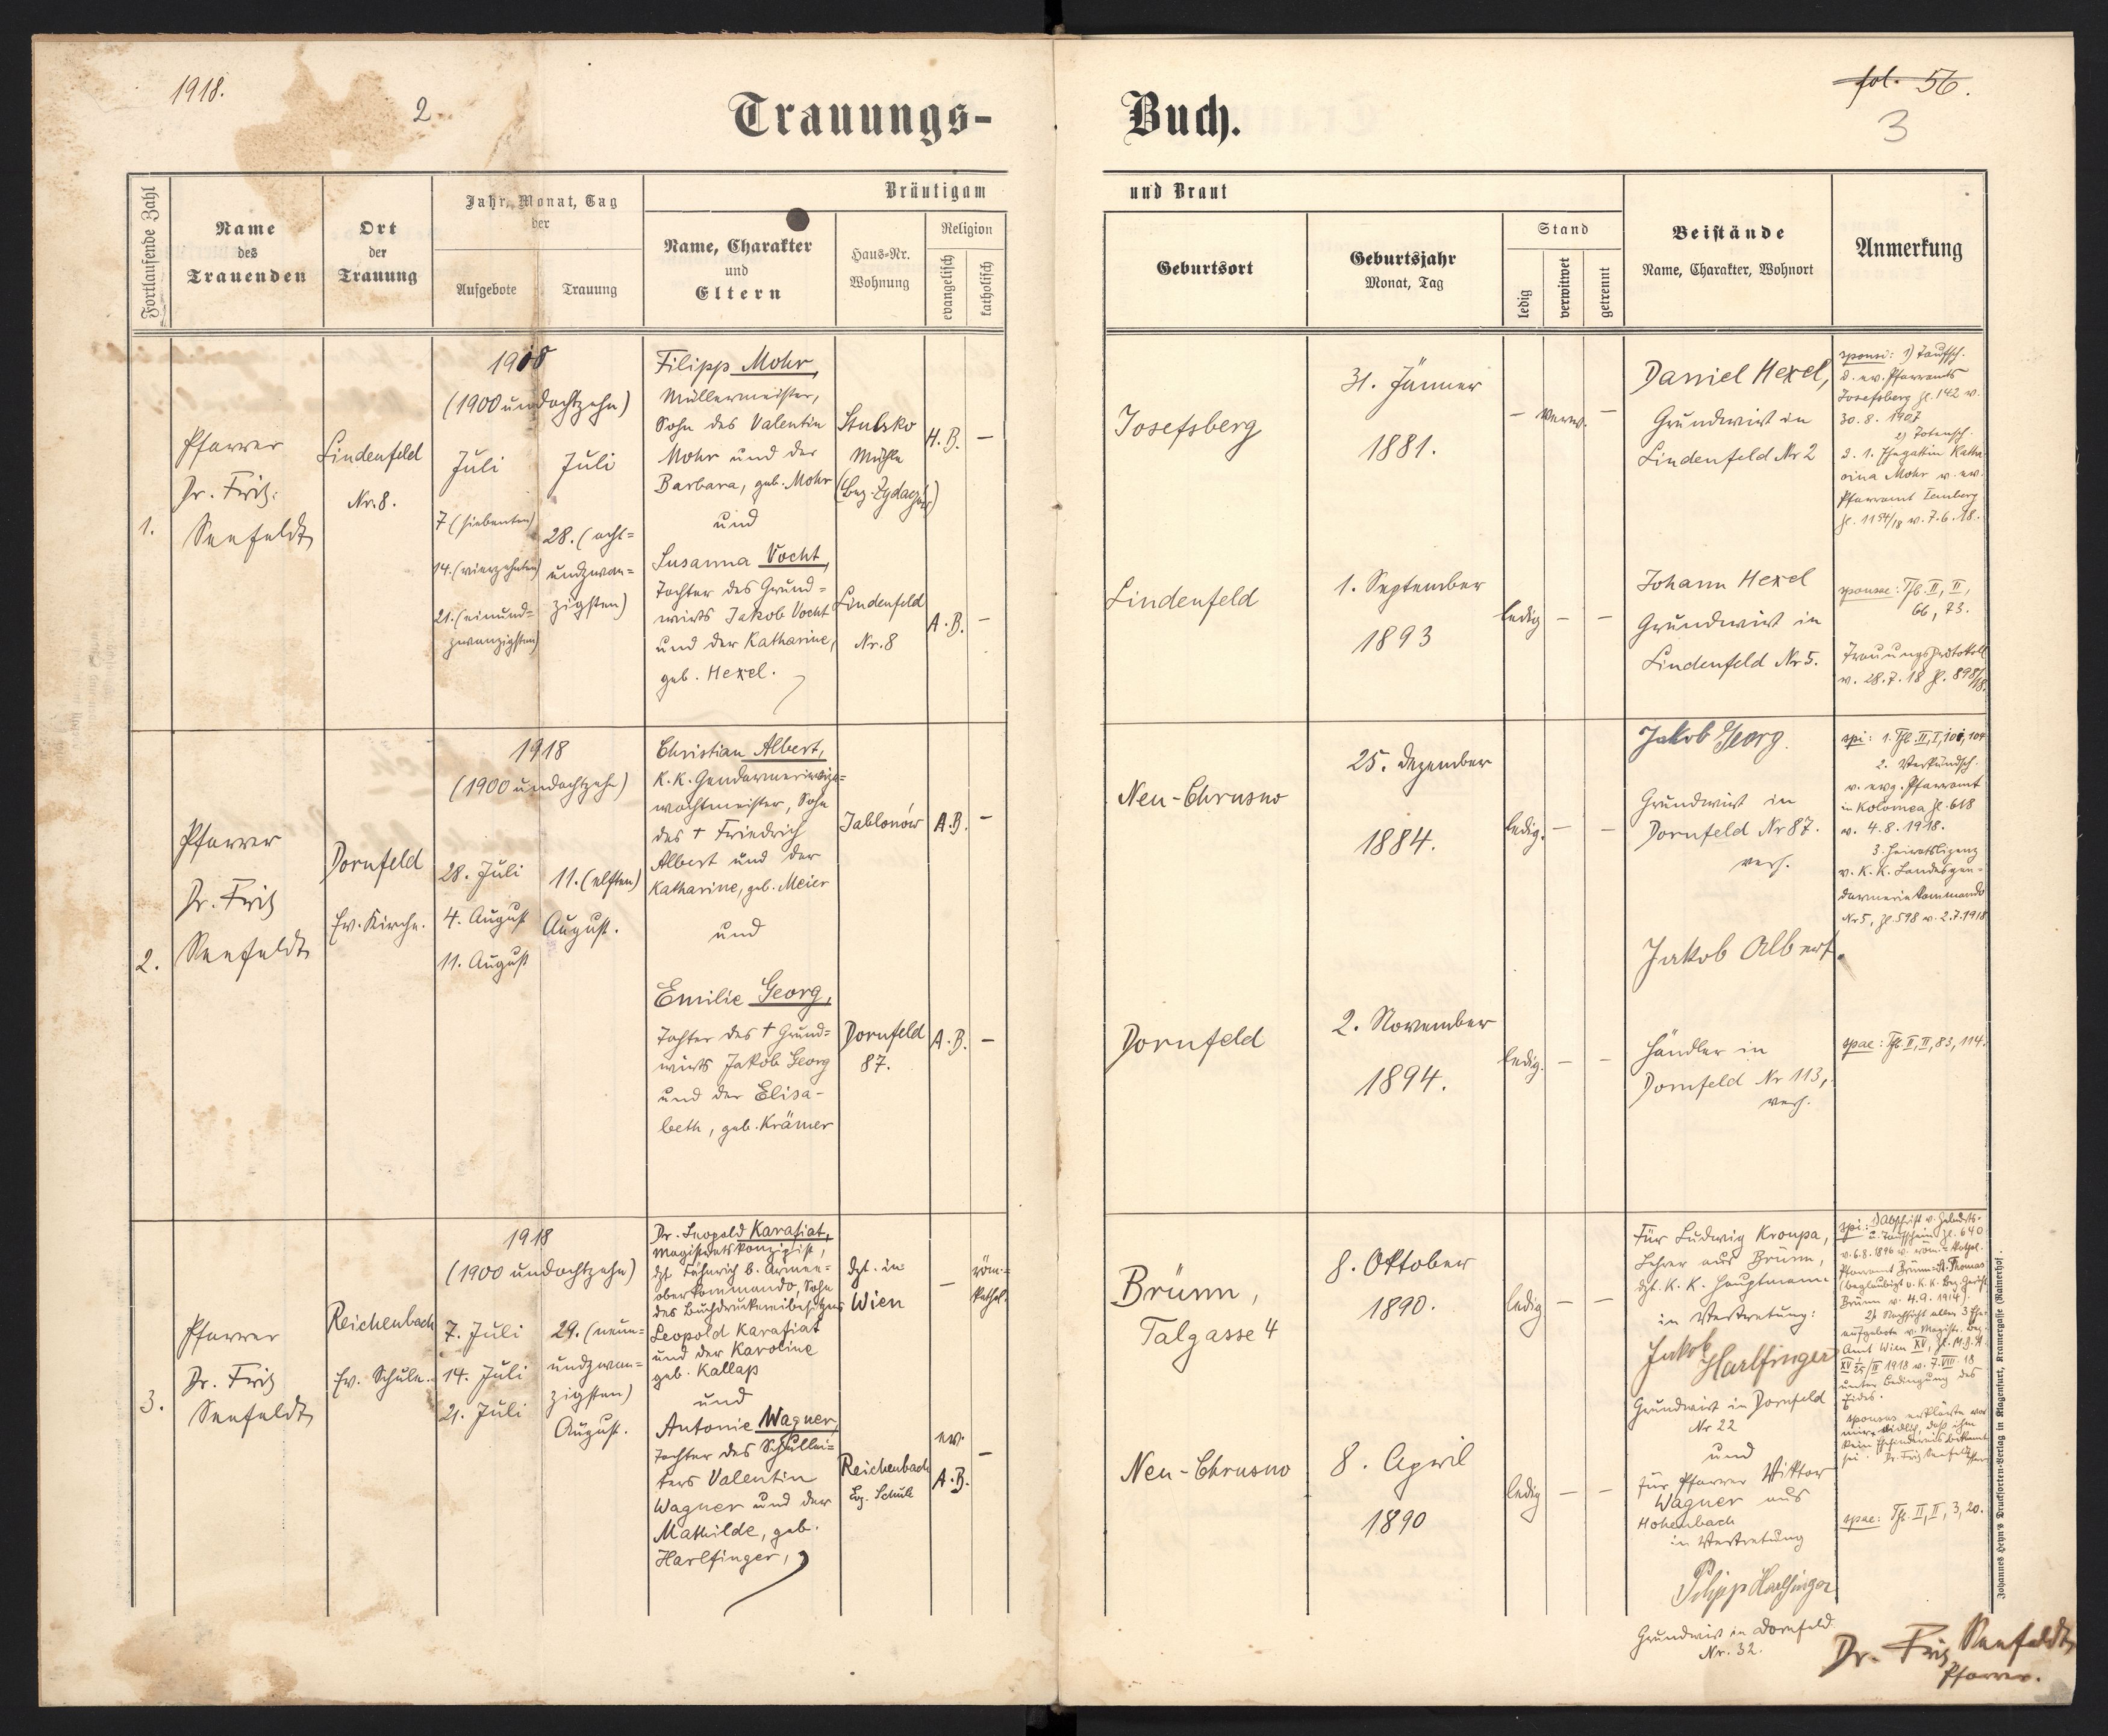 1918.
2
Trauungs-
Buch.
fol. 56.
3
Fortlaufende Zahl
Name
des
Trauenden
Ort
der
Trauung
Jahr, Monat, Tag
der
Aufgebote
Trauung
Bräutigam
Name, Charakter
und
Eltern
Haus-Nr.
Wohnung
Religion
evangelisch
katholisch
und Braut
Geburtsort
Geburtsjahr
Monat, Tag
Stand
ledig
verwitwet
getrennt
Beistände
Name, Charakter, Wohnort
Anmerkung
1.
Pfarrer
Dr. Fritz
Seefeldt
Lindenfeld
Nr. 8.
1918
(1900 undachtzehn)
Juli
7 (siebenten)
14. (vierzehnten)
21. (einund=
zwanzigsten)
Juli
28. (acht=
undzwan=
zigsten)
Filipp Mohr,
Müllermeister,
Sohn des Valentin
Mohr und der
Barbara, geb. Mohr
und
Susanna Vocht,
Tochter des Grund=
wirts Jakob Vocht
und der Katharine,
geb. Hexel.
Stulsko
Mühle
Lindenfeld
Nr. 8
H. B.
–
A. B.
–
Josefsberg
31. Jänner
1881.
– verw. –
Lindenfeld
1. September
1893
ledig – –
Daniel Hexel,
Grundwirt in
Lindenfeld Nr 2
Johann Hexel
Grundwirt in
Lindenfeld Nr 5.
sponsi: 1) Taufsch.
d. ev. Pfarramts
Josefsberg Zl. 142 v.
30. 8. 1907
2) Totensch.
d. 1. Ehegattin Katha
rina Mohr v. ev.
Pfarramt Lemberg
Zl. 1154/18 v. 7. 6. 18.
sponsae: Tfb. II, II,
66, 73.
Trauungsprotokoll
v. 28. 7. 18 Zl. 898/18.
2.
Pfarrer
Dr. Fritz
Seefeldt
Dornfeld
Ev. Kirche.
1918
(1900 undachtzehn)
28. Juli
4. August
11. August
11. (elften)
August.
Christian Albert,
K. K. Gendarmerievize=
wachtmeister, Sohn
des † Friedrich
Albert und der
Katharine, geb. Meier
und
Emilie Georg,
Tochter des † Grund=
wirts Jakob Georg
und der Elisa-
beth, geb. Krämer
Jablonów
Dornfeld
87.
A. B. –
A. B. –
Neu-Chrusno
25. Dezember
1884.
ledig. – –
Dornfeld
2. November
1894.
ledig. – –
Jakob Georg.
Grundwirt in
Dornfeld Nr 87.
verh.
Jakob Albert.
Händler in
Dornfeld Nr 113,
verh.
spi: 1. Tfb. II, I, 101, 104
2. Verkündsch.
v. evg. Pfarramt
in Kolomea Zl. 618
v. 4. 8. 1918.
3. Heiratslizenz
v. K. K. Landesgen=
darmerie Kommando
Nr 5, Zl. 598 v. 2. 7. 1918
spae: Tfb II, II, 83, 114.
3.
Pfarrer
Dr. Fritz
Seefeldt
Reichenbach
Ev. Schule.
1918
(1900 undachtzehn)
7. Juli
14. Juli
21. Juli
29. (neun=
undzwan=
zigsten)
August.
Dr. Leopold Karafiat,
Magistratskonzipist,
dzt. Fähnrich b. Armee=
oberkommando, Sohn
des Buchdruckereibesitzers
Leopold Karafiat
und der Karoline
geb. Kallap
und
Antonie Wagner,
Tochter des Schullei=
ters Valentin
Wagner und der
Mathilde, geb.
Harlfinger,
dzt. in
Wien
Reichenbach
Ev. Schule
–
röm.=
kathol.
ev.
A. B.
–
Brünn,
Talgasse 4
8. Oktober
1890.
ledig – –
Neu-Chrusno
8. April
1890
ledig – –
Für Ludwig Kroupa,
Lehrer aus Brünn,
dzt. K. K. Hauptmann
in Vertretung:
Jakob
Harlfinger
Grundwirt in Dornfeld
Nr 22
und
für Pfarrer Viktor
Wagner aus
Hohenbach
in Vertretung
Philipp Harlfinger
Grundwirt in Dornfeld
Nr. 32.
spi: 1) Abschrift v. Geburts-
u. Taufschein Zl. 640
v. 6. 8. 1896 v. röm.-kathol.
Pfarramt Brünn-St. Thomas
(beglaubigt v. K. K. Bez. Gericht
Brünn v. 4. 9. 1914).
2) Nachsicht aller 3 Ehe-
aufgebote v. Magistr. Bez.-
Amt Wien XV, Zl. M. B. A.
1918 v. 7. VIII. 18
unter Bedingung des
Eides.
sponsus erklärte vor
mir eidlich, daß ihm
kein Ehehindernis bekannt
sei. Dr. Fritz Seefeldt
spae: Tfb. II, II, 3, 20.
Dr. Fritz Seefeldt
Pfarrer.
Johannes Heyn's Drucksorten-Verlag in Klagenfurt, Kramergasse (Rainerhof.